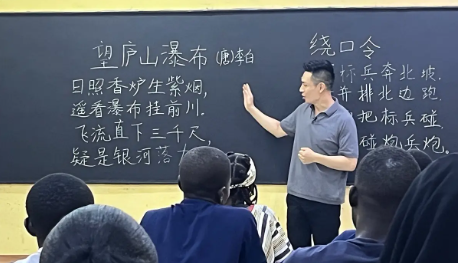 望庐山瀑布 (唐)李白
日照香炉生紫烟,
遥看瀑布挂前川.
飞流直下三千尺,
疑是银河落
绕口令
标兵奔北坡,
并排北边跑,
把标兵碰,
碰炮兵炮.